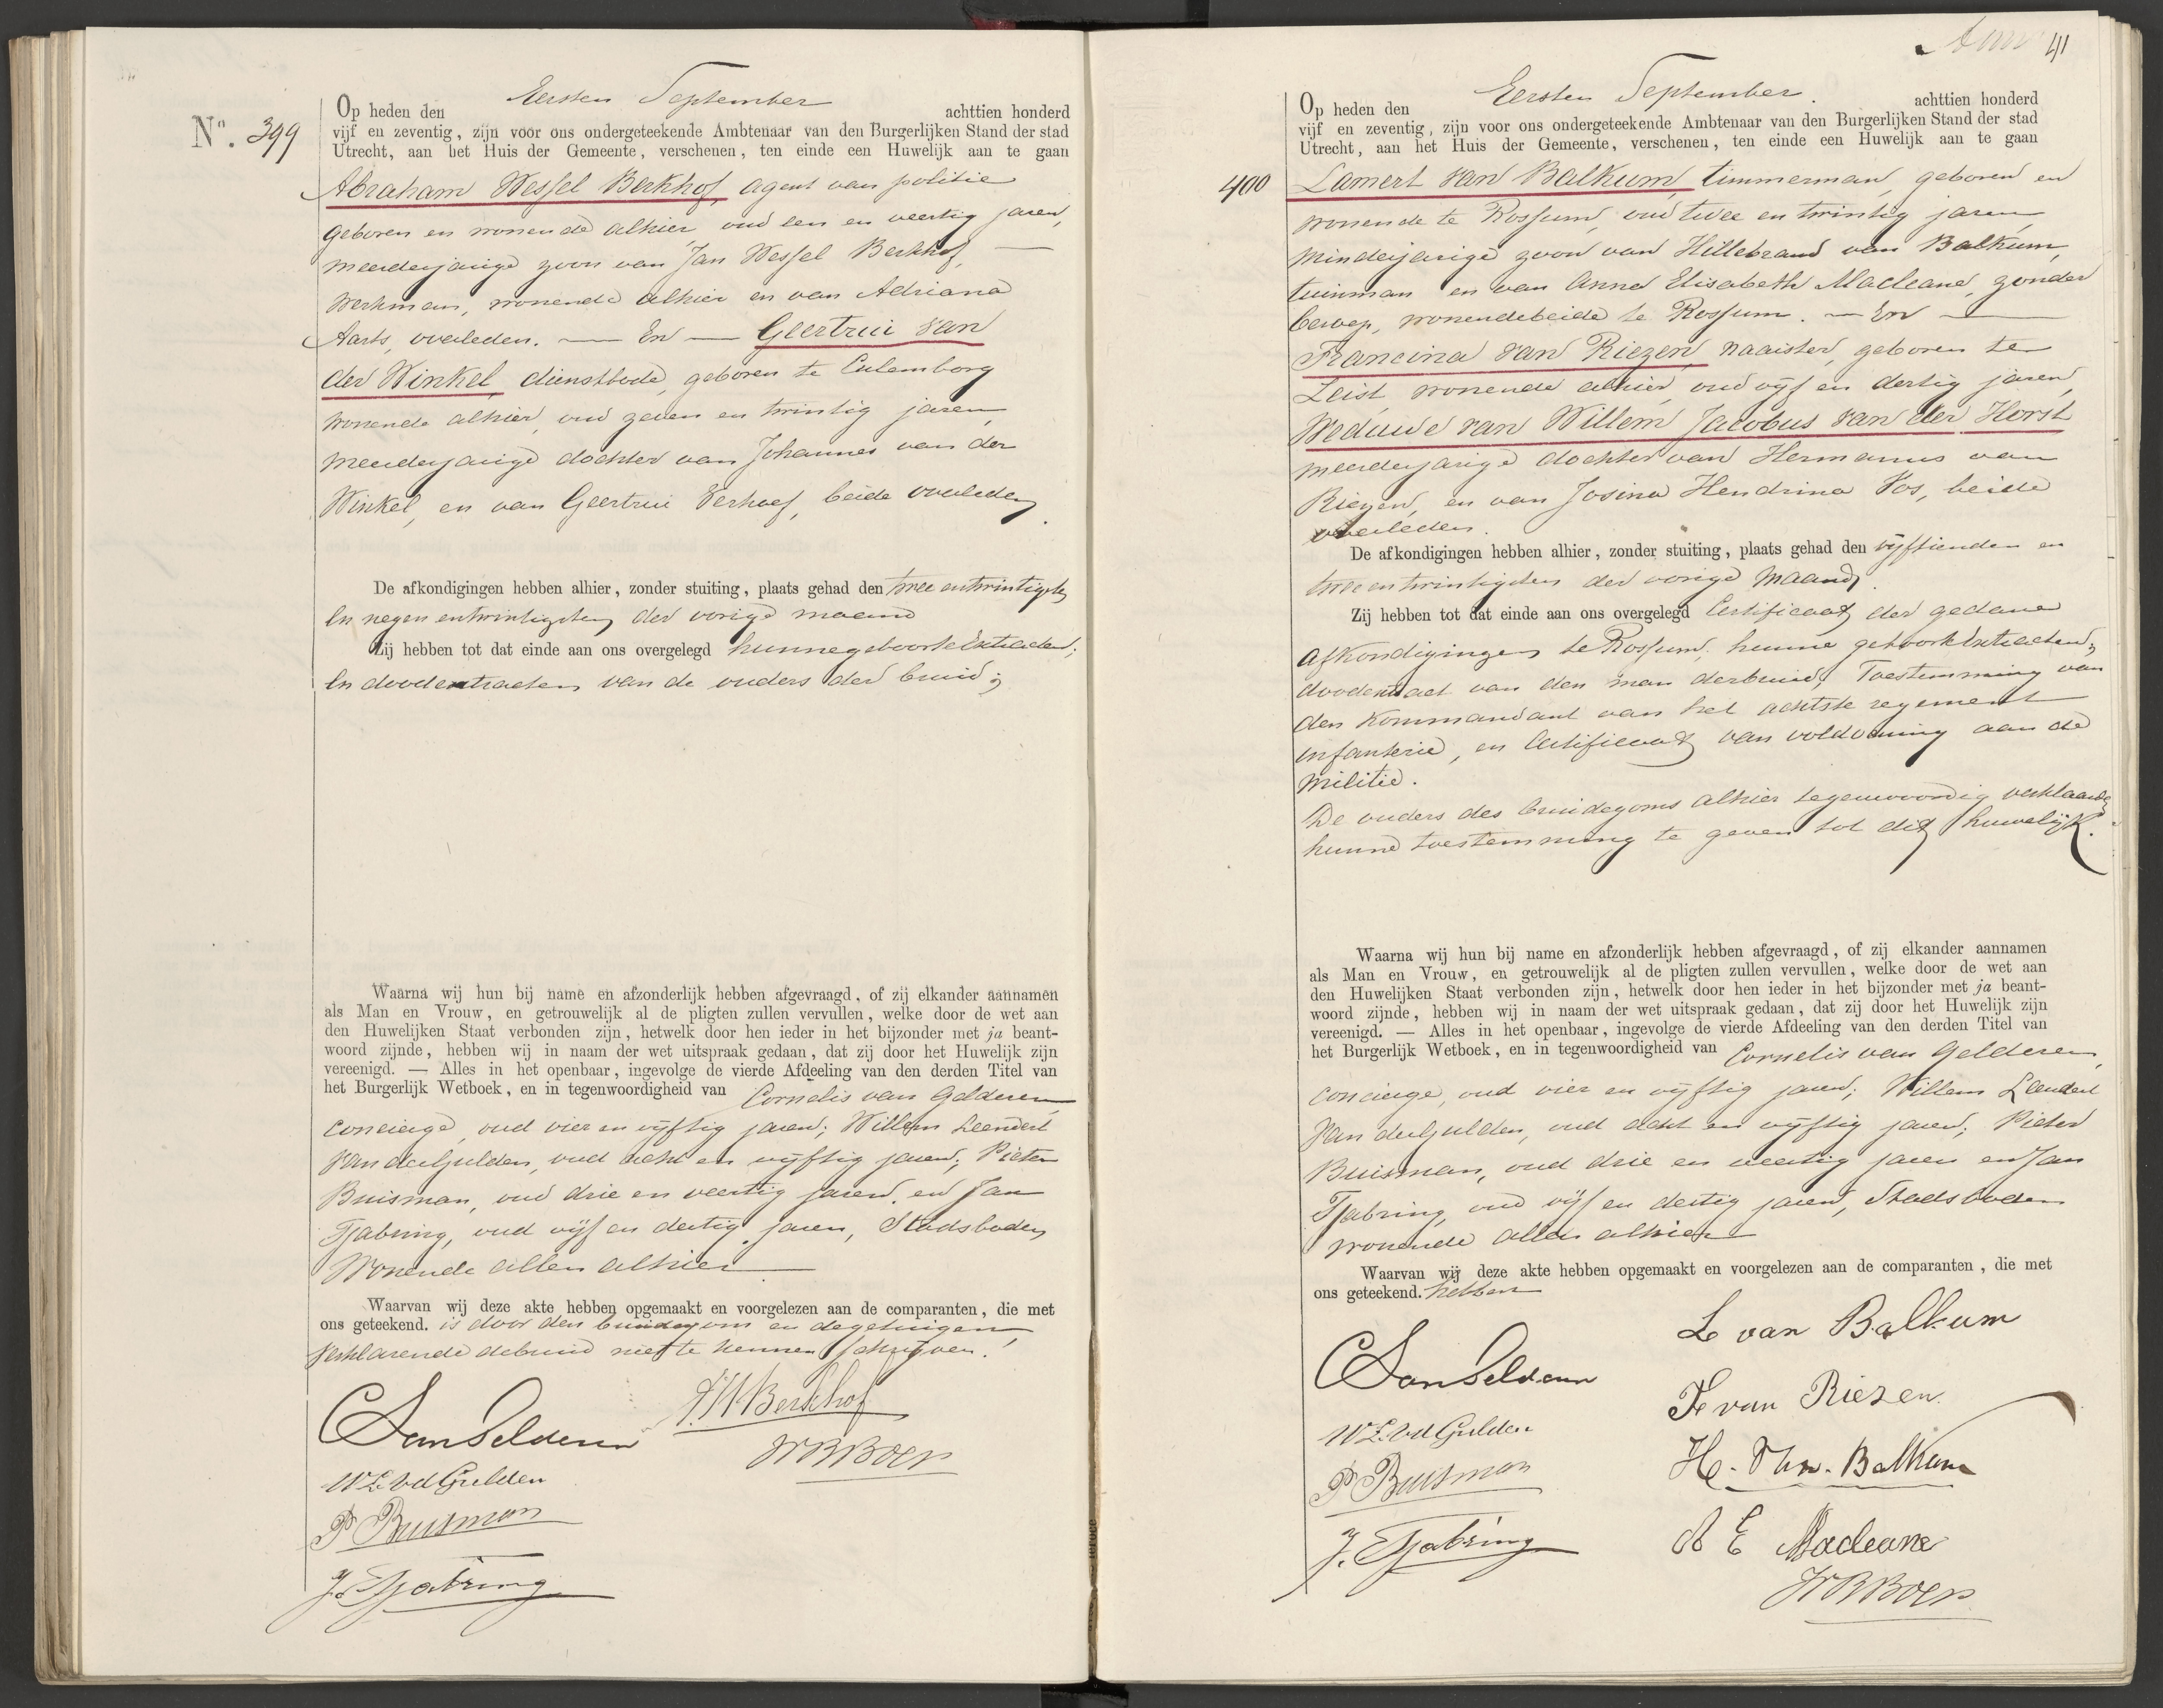 Nº. 399
Op heden den Eersten September achttien honderd
vijf en zeventig, zijn voor ons ondergeteekende Ambtenaar van den Burgerlijken Stand der stad
Utrecht, aan het Huis der Gemeente, verschenen, ten einde een Huwelijk aan te gaan
Abraham Wessel Berkhof, agent van politie
geboren en wonende alhier, oud een en veertig jaren,
meerderjarige zoon van Jan Wessel Berkhof,
Werkman, wonende alhier en van Adriana
Aarts, overleden. — En — Geertrui van
der Winkel, dienstbode, geboren te Culemborg
wonende alhier, oud zeven en twintig jaren
meerderjarige dochter van Johannes van der
Winkel, en van Geertrui Verhoef, beide overleden.
De afkondigingen hebben alhier, zonder stuiting, plaats gehad den twee entwintigsten
en negen entwintigsten der vorige maand
Zij hebben tot dat einde aan ons overgelegd hunne geboorte Extracten;
en doodextracten van de ouders der bruid;
Waarna wij hun bij name en afzonderlijk hebben afgevraagd, of zij elkander aannamen
als Man en Vrouw, en getrouwelijk al de pligten zullen vervullen, welke door de wet aan
den Huwelijken Staat verbonden zijn, hetwelk door hen ieder in het bijzonder met ja beant-
woord zijnde, hebben wij in naam der wet uitspraak gedaan, dat zij door het Huwelijk zijn
vereenigd. — Alles in het openbaar, ingevolge de vierde Afdeeling van den derden Titel van
het Burgerlijk Wetboek, en in tegenwoordigheid van Cornelis van Gelderen
concierge, oud vier en vijftig jaren; Willem Leendert
van der Gulden, oud acht en vijftig jaren; Pieter
Buisman, oud drie en veertig jaren, en Jan
Tjabring, oud vijf en dertig jaren, Stadsboden
Wonende allen alhier
Waarvan wij deze akte hebben opgemaakt en voorgelezen aan de comparanten, die met
ons geteekend. is door den bruidegom en de getuigen,
verklarende de bruid niet te kennen schrijven.
C van Gelderen
A.W. Berkhof
W L vd Gulden
W R Boer
P Buisman
J. Tjabring
41
Op heden den Eersten September. achttien honderd
vijf en zeventig, zijn voor ons ondergeteekende Ambtenaar van den Burgerlijken Stand der stad
Utrecht, aan het Huis der Gemeente, verschenen, ten einde een Huwelijk aan te gaan
400 Lamert van Balkum, timmerman, geboren en
wonende te Rossum, oud twee en twintig jaren
minderjarige zoon van Hillebrand van Balkum,
tuinman en van Anna Elisabeth Macleane, zonder
beroep, wonende beide te Rossum. — En —
Francina van Riezen, naaister, geboren te
Zeist, wonende alhier, oud vijf en dertig jaren,
Weduwe van Willem Jacobus van der Horst
meerderjarige dochter van Hermanus van
Riezen, en van Josina Hendrina Vos, beide
overleden.
De afkondigingen hebben alhier, zonder stuiting, plaats gehad den vijftienden en
twee en twintigsten der vorige maand,
Zij hebben tot dat einde aan ons overgelegd Certificaat der gedane
afkondigingen te Rossum; hunne geboorte Extracten;
doodextract van den man der bruid, Toestemming van
den Kommandant van het achtste regement
infanterie, en Certificaat van voldoening aan de
militie.
De ouders des bruidegoms alhier tegenwoordig verklaarden
hunne toestemming te geven tot dit huwelijk.
Waarna wij hun bij name en afzonderlijk hebben afgevraagd, of zij elkander aannamen
als Man en Vrouw, en getrouwelijk al de pligten zullen vervullen, welke door de wet aan
den Huwelijken Staat verbonden zijn, hetwelk door hen ieder in het bijzonder met ja beant-
woord zijnde, hebben wij in naam der wet uitspraak gedaan, dat zij door het Huwelijk zijn
vereenigd. — Alles in het openbaar, ingevolge de vierde Afdeeling van den derden Titel van
het Burgerlijk Wetboek, en in tegenwoordigheid van Cornelis van Gelderen,
concierge, oud vier en vijftig jaren; Willem Leendert
van der Gulden, oud acht en vijftig jaren; Pieter
Buisman, oud drie en veertig jaren en Jan
Tjabring, oud vijf en dertig jaren, Stadsboden
wonende allen alhier
Waarvan wij deze akte hebben opgemaakt en voorgelezen aan de comparanten, die met
ons geteekend. hebben
L van Balkum
C van Gelderen
F van Riezen.
W L vd Gulden
H. van Balkum
P Buisman
A E Macleane
J. Tjabring
W R Boer